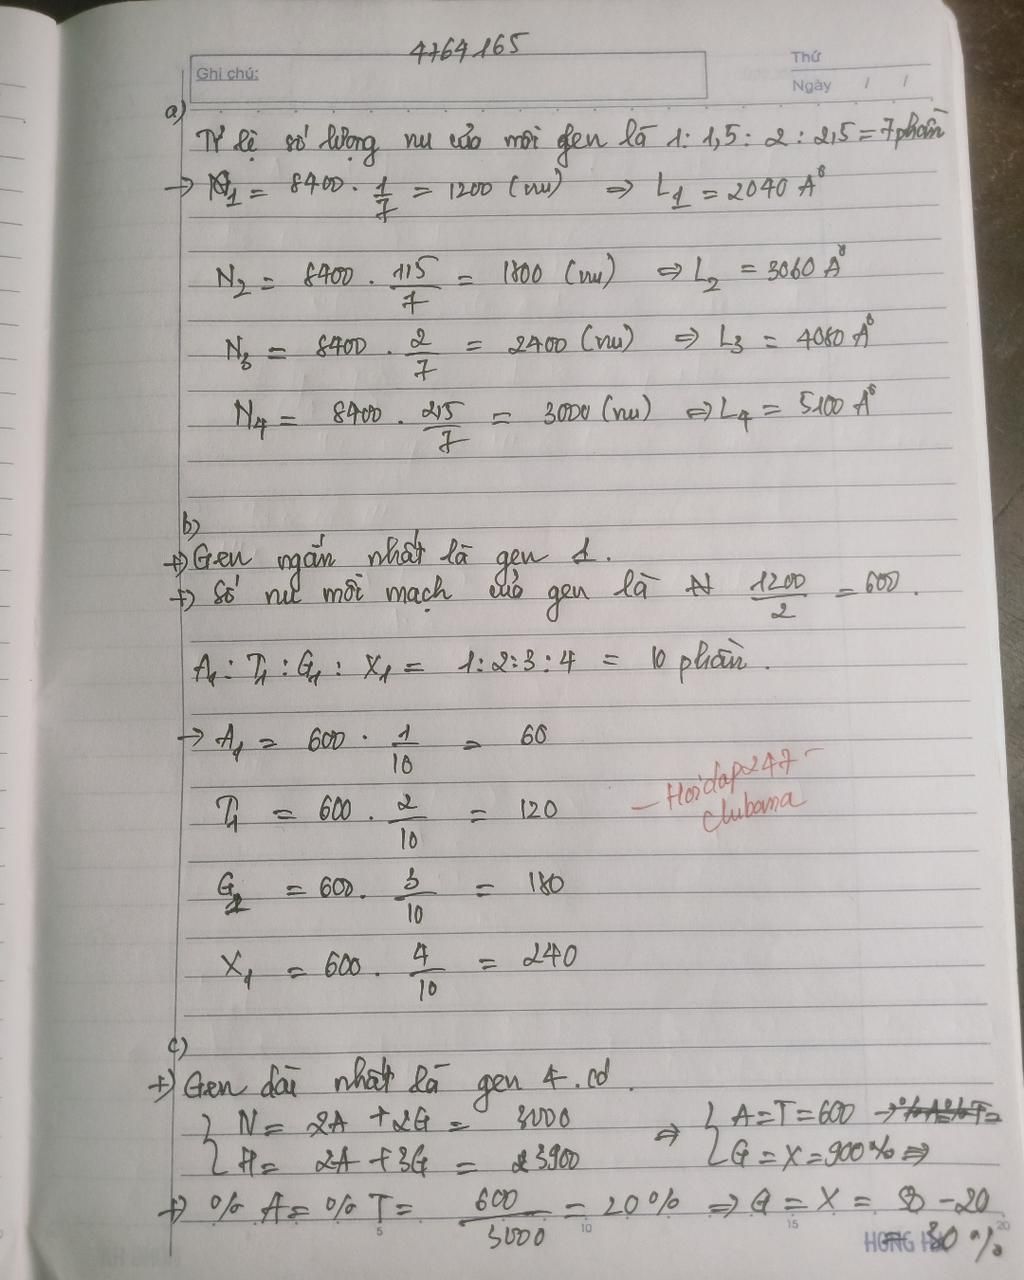 4764165
Ghi chú:
Thứ
Ngày / /
a)
Tỷ lệ số lượng nu của mỗi gen là 1: 1,5: 2: 2,5 = 7 phần
→ N1 = 8400 . 1/7 = 1200 (nu) ⇒ L1 = 2040 A°
N2 = 8400 . 1,5/7 = 1800 (nu) ⇒ L2 = 3060 A°
N3 = 8400 . 2/7 = 2400 (nu) ⇒ L3 = 4080 A°
N4 = 8400 . 2,5/7 = 3000 (nu) ⇒ L4 = 5100 A°
b)
+) Gen ngắn nhất là gen 1.
+) Số nu mỗi mạch của gen là 1200/2 = 600.
A1 : T1 : G1 : X1 = 1:2:3:4 = 10 phần.
→ A1 = 600 . 1/10 = 60
T1 = 600 . 2/10 = 120
G1 = 600 . 3/10 = 180
X1 = 600 . 4/10 = 240
- Hoidap247 -
clubama
c)
+) Gen dài nhất là gen 4. có
{ N = 2A + 2G = 3000 ⇒ { A = T = 600
H = 2A + 3G = 3900 G = X = 900 % ⇒
+) % A = % T = 600/3000 = 20 % ⇒ G = X = 50 - 20
= 30 %
5 10 15 20
HONG HA